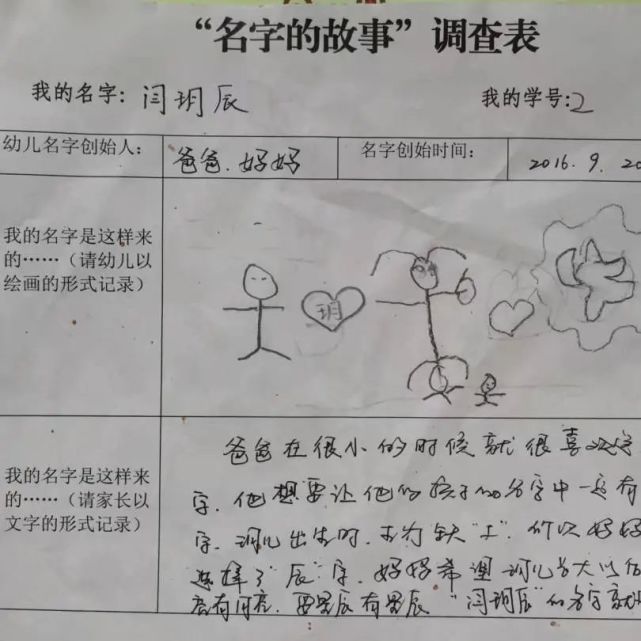 “名字的故事”调查表
我的名字：闫玥辰 我的学号：2
幼儿名字创始人： 爸爸、妈妈 名字创始时间： 2016.9.20
我的名字是这样来
的……（请幼儿以
绘画的形式记录）
玥
我的名字是这样来
的……（请家长以
文字的形式记录）
爸爸在很小的时候就很喜欢
字，他想要让他的孩子的名字中一定有
字，玥儿出生时，五行缺“土”，所以妈妈
选择了“辰”字，妈妈希望玥儿长大以后
有月亮，要星辰有星辰“闫玥辰”的名字就